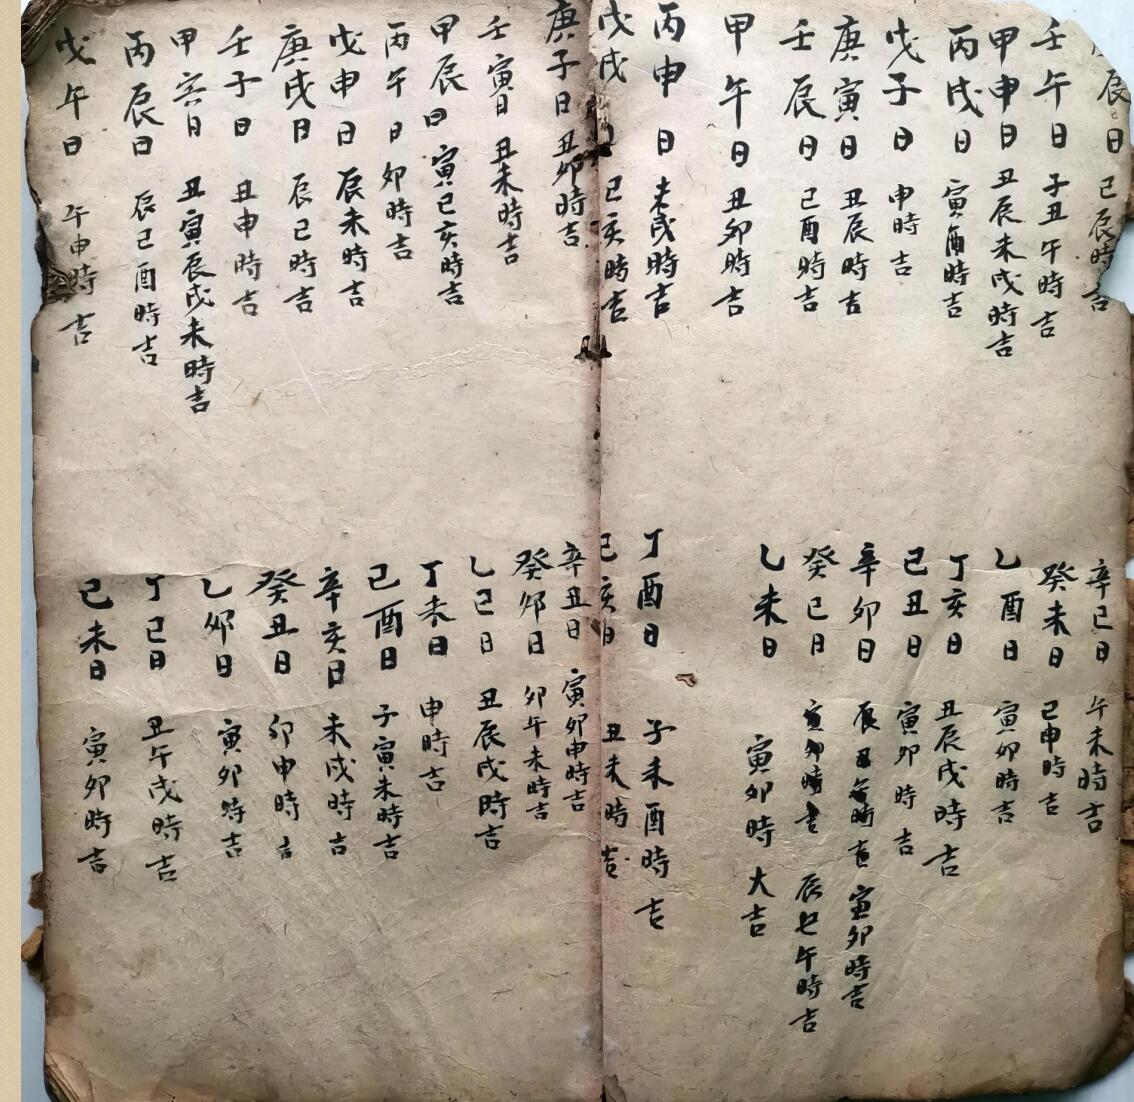 辰日 己辰時吉
辛己日 午未時吉
壬午日 子丑午時吉
癸未日 己申時吉
甲申日 丑辰未戌時吉
乙酉日 寅卯時吉
丙戌日 寅酉時吉
丁亥日 丑辰戌時吉
戊子日 申時吉
己丑日 寅卯時吉
庚寅日 丑辰時吉
辛卯日 寅卯時吉
壬辰日 己酉時吉
癸己日 寅卯時 辰巳午時吉
甲午日 丑卯時吉
乙未日 寅卯時大吉
丙申日 未戌時吉
丁酉日 子未酉時吉
戊戌日 己亥時吉
己亥日 丑未時吉
庚子日 丑卯時吉
辛丑日 寅卯申時吉
壬寅日 丑未時吉
癸卯日 卯午未時吉
甲辰日 寅己亥時吉
乙己日 丑辰戌時吉
丙午日 卯時吉
丁未日 申時吉
戊申日 辰未時吉
己酉日 子寅未時吉
庚戌日 辰己時吉
辛亥日 未戌時吉
壬子日 丑申時吉
癸丑日 卯申時吉
甲亥日 丑寅辰戌未時吉
乙卯日 寅卯時吉
丙辰日 辰己酉時吉
丁己日 丑午戌時吉
戊午日 午申時吉
己未日 寅卯時吉